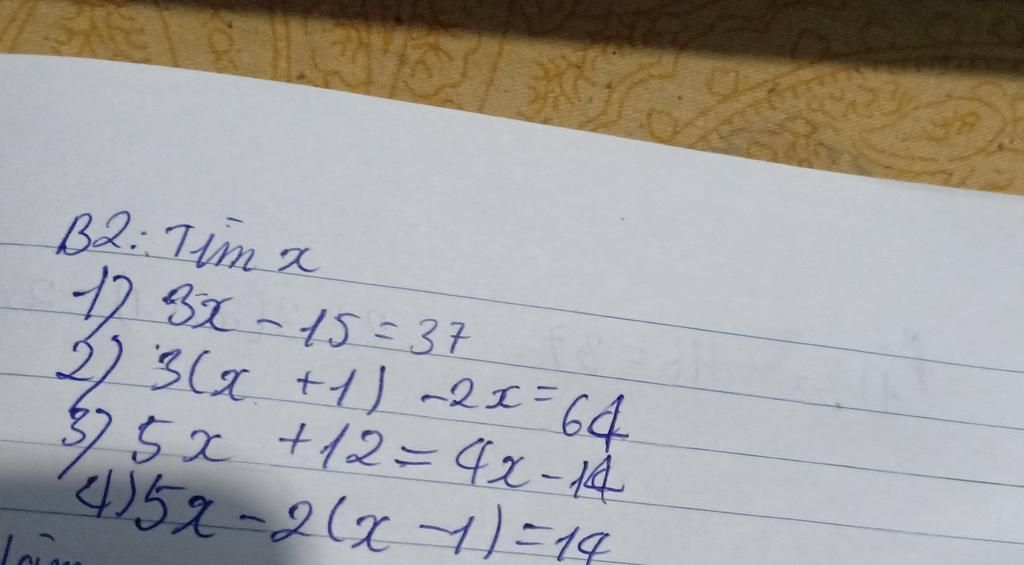 B2: Tìm x
1) 3x - 15 = 37
2) 3(x + 1) - 2x = 64
3) 5x + 12 = 4x - 14
4) 5x - 2(x - 1) = 14